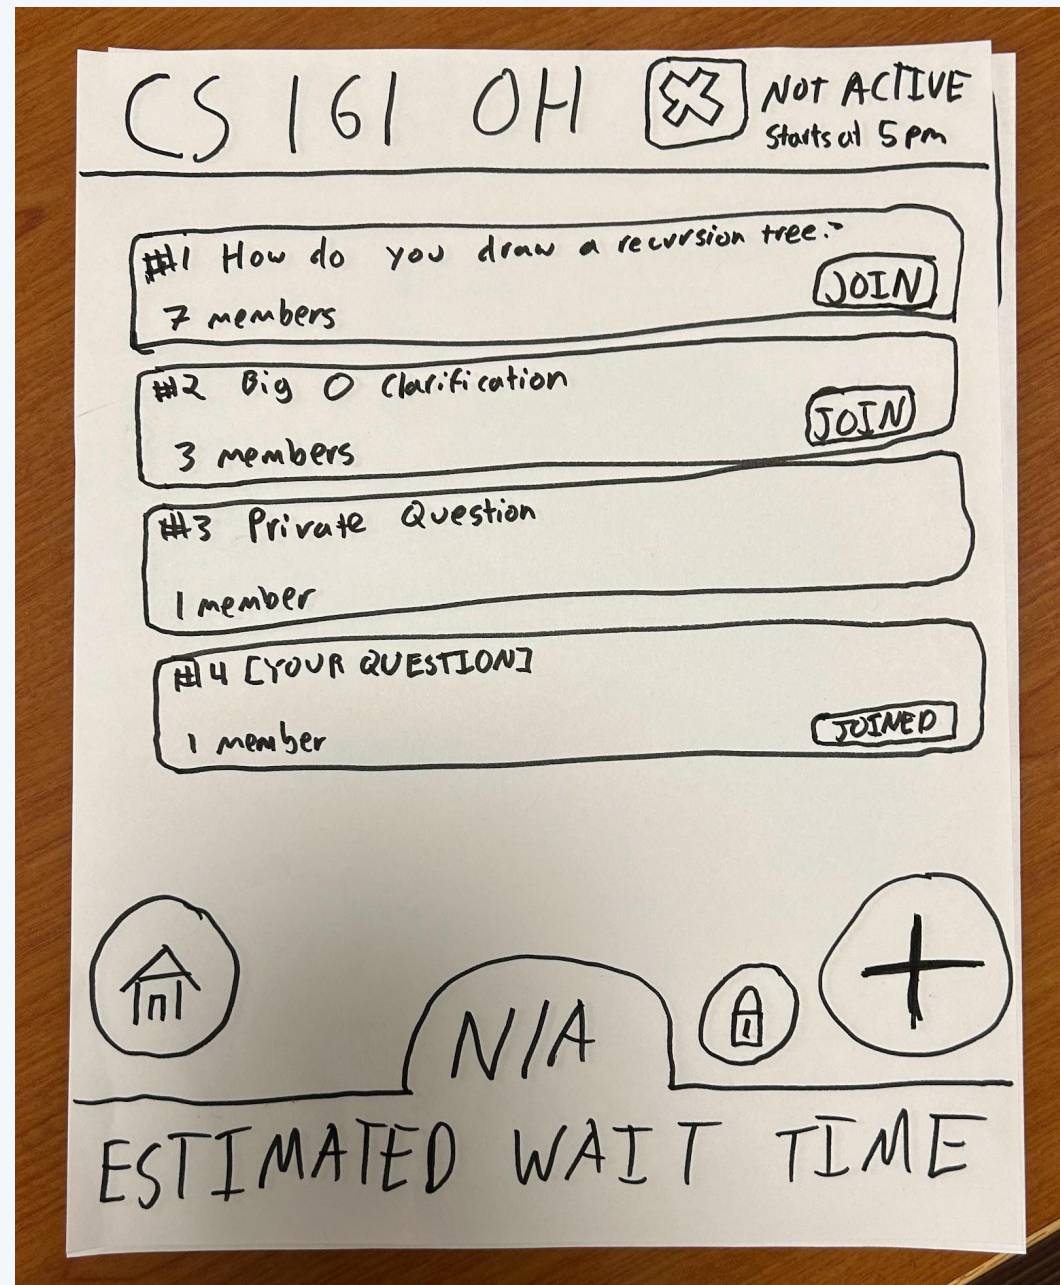 CS 161 OH
NOT ACTIVE
Starts at 5 pm
#1 How do you draw a recursion tree?
7 members
JOIN
#2 Big O Clarification
3 members
JOIN
#3 Private Question
1 member
#4 [YOUR QUESTION]
1 member
JOINED
N/A
ESTIMATED WAIT TIME